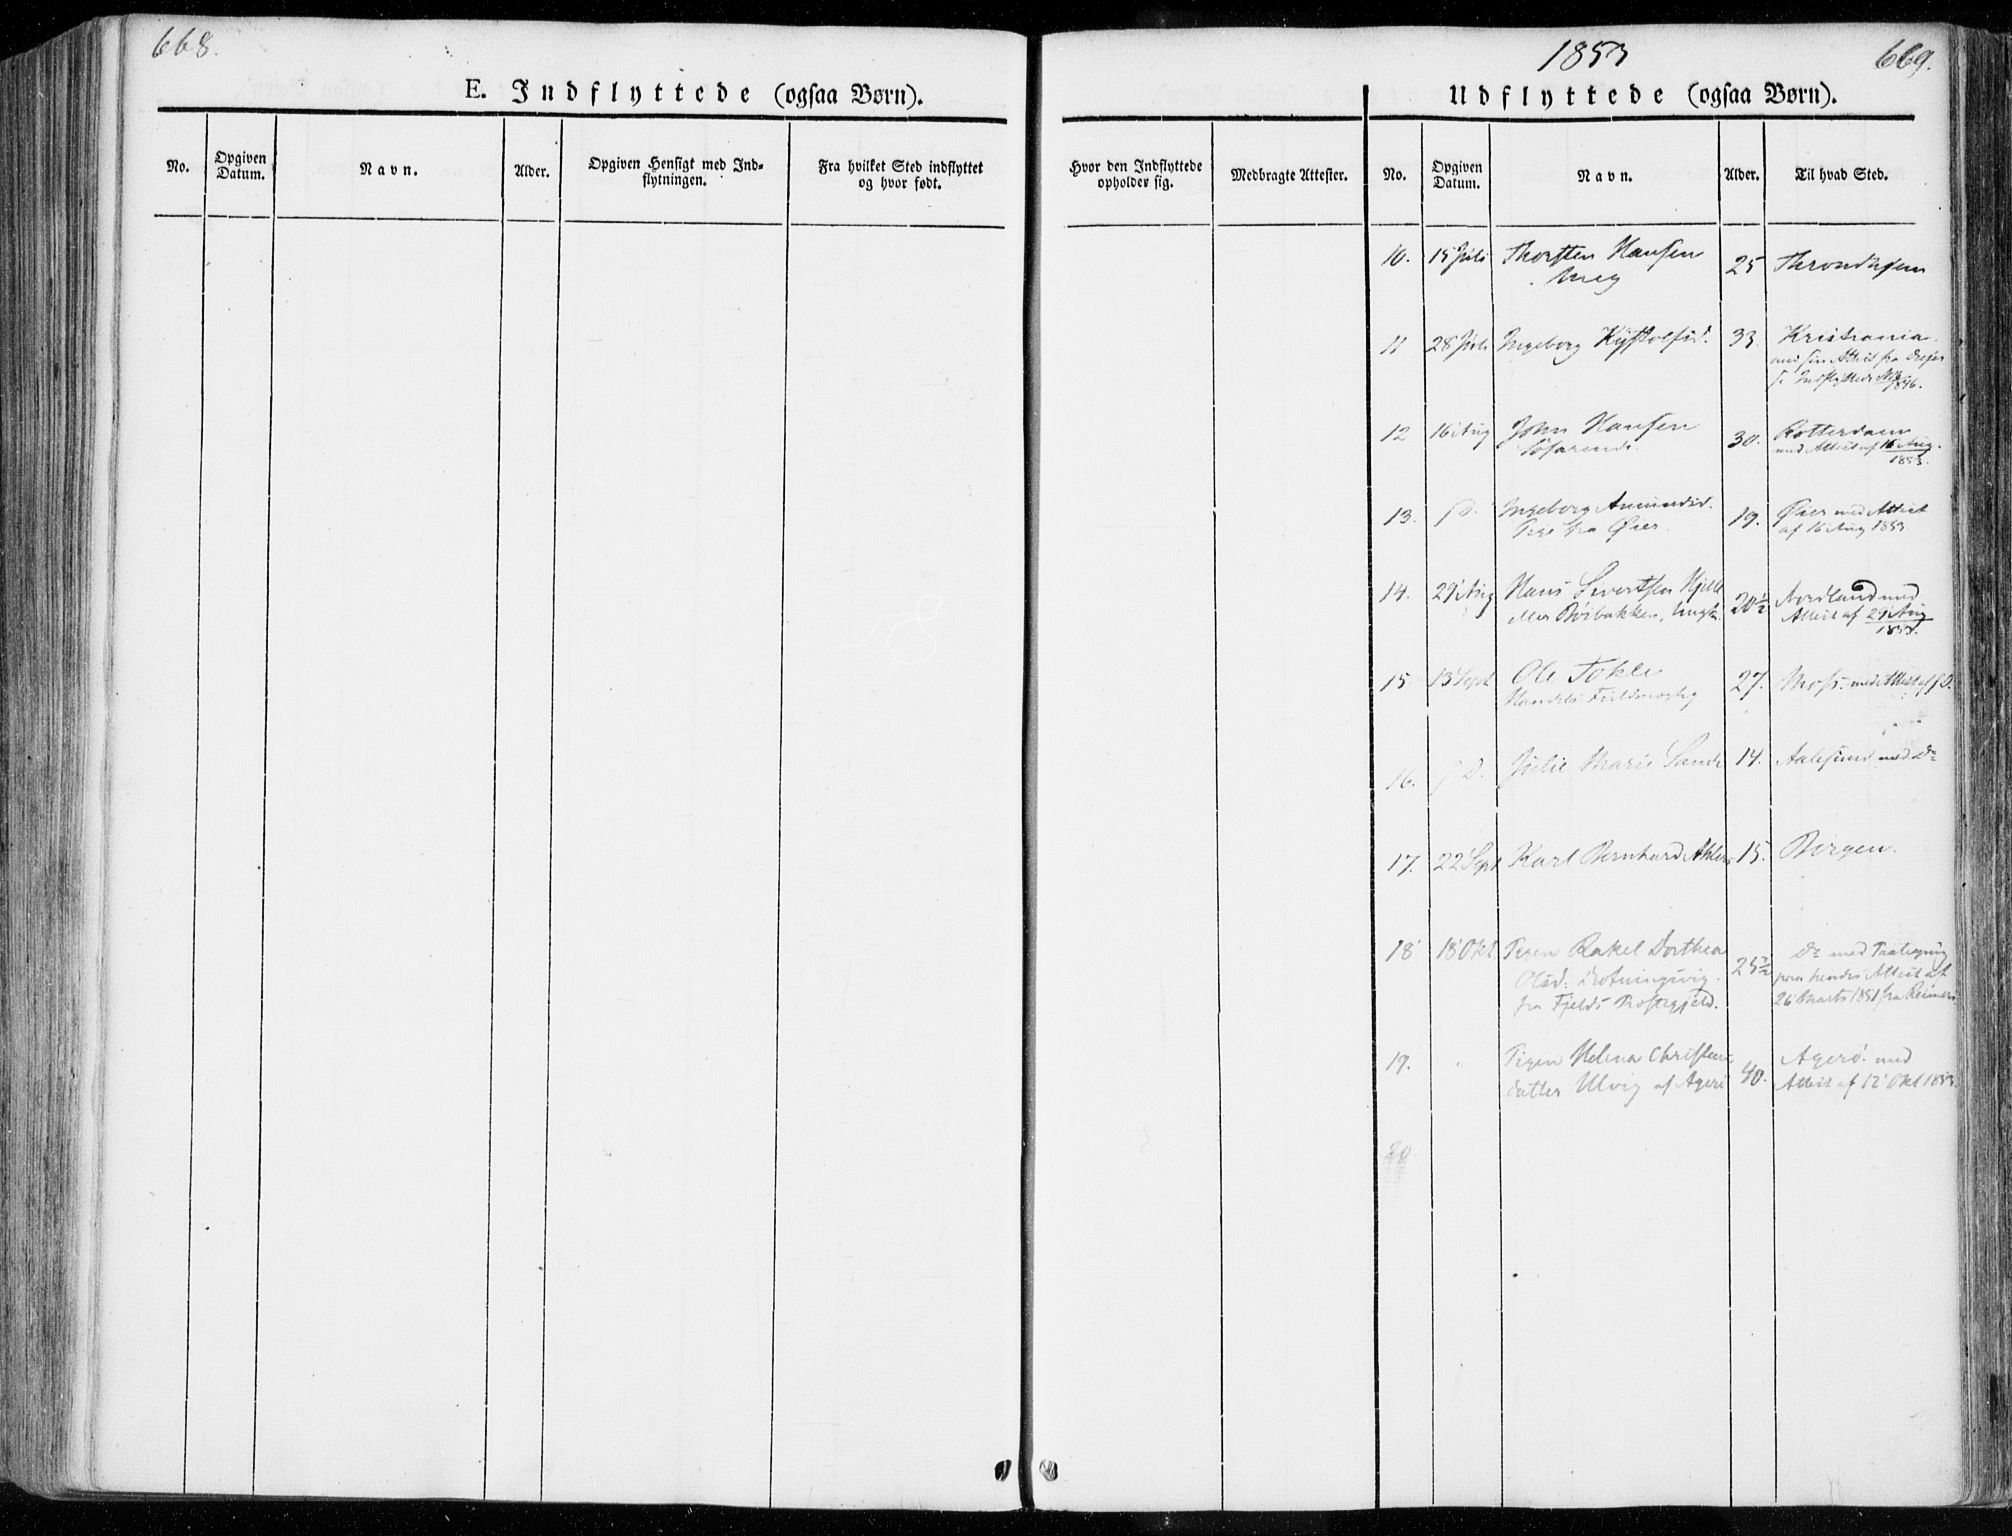 668.
E. Indflyttede (ogsaa Børn).
No.
Opgiven Datum.
Navn.
Alder.
Opgiven Hensigt med Ind-
flytningen.
Fra hvilket Sted indflyttet
og hvor født.
1853
669.
Udflyttede (ogsaa Børn).
Hvor den Indflyttede
opholder sig.
Medbragte Attester.
No.
Opgiven Datum.
Navn.
Alder.
Til hvad Sted.
10. 15 Juli Thorsten Hansen 25 Throndhjem
11 28 Juli Ingeborg 33. Kristiania.
med sin Attest fra
Indflyttede
1846.
12 16 Aug John Hansen 30. Rotterdam
Søfarende med Attest af 16 Aug.
1853.
13. Ingeborg Amundsd. 19. Øier med Attest
Pige fra Øier. af 16 Aug 1853
14. 29 Aug Hans Sivertsen Hjelle 20½ Nordland med
eller Bøibakken, Ungk. Attest af 29 Aug
1853.
15. 13 Sept Ole Tokle 27. Moss. med Attest af
Handels
16. Julie Marie Sande 14. Aalesund med Do
17. 22 Sept Karl Bernhard Ahlers 15. Bergen.
18 18 Okt Pigen Rakel Dorthea 25½ Do med Paategning
Olsd. Drotningvig. paa hendes Attest af
fra Fjelds Præstegjeld. 26 Marts 1851 fra
19. Pigen Helena Christens 40. Agerø. med
datter Ulvig af Agerø Attest af 12 Okt 1853.
20